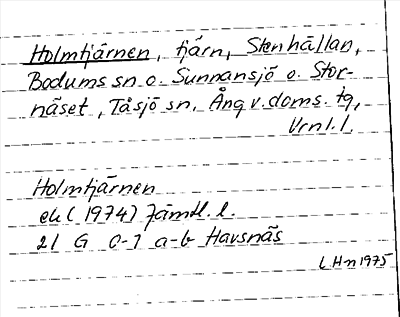 Holmtjärnen, tjärn, Stenhällan,
Bodums sn o. Sunnansjö o. Stor-
näset, Tåsjö sn, Ång.v.doms. tg,
Vrnl.l.
Holmtjärnen
ek (1974) Jämtl. l.
21 G 0-1 a-b Havsnäs
LHn 1975